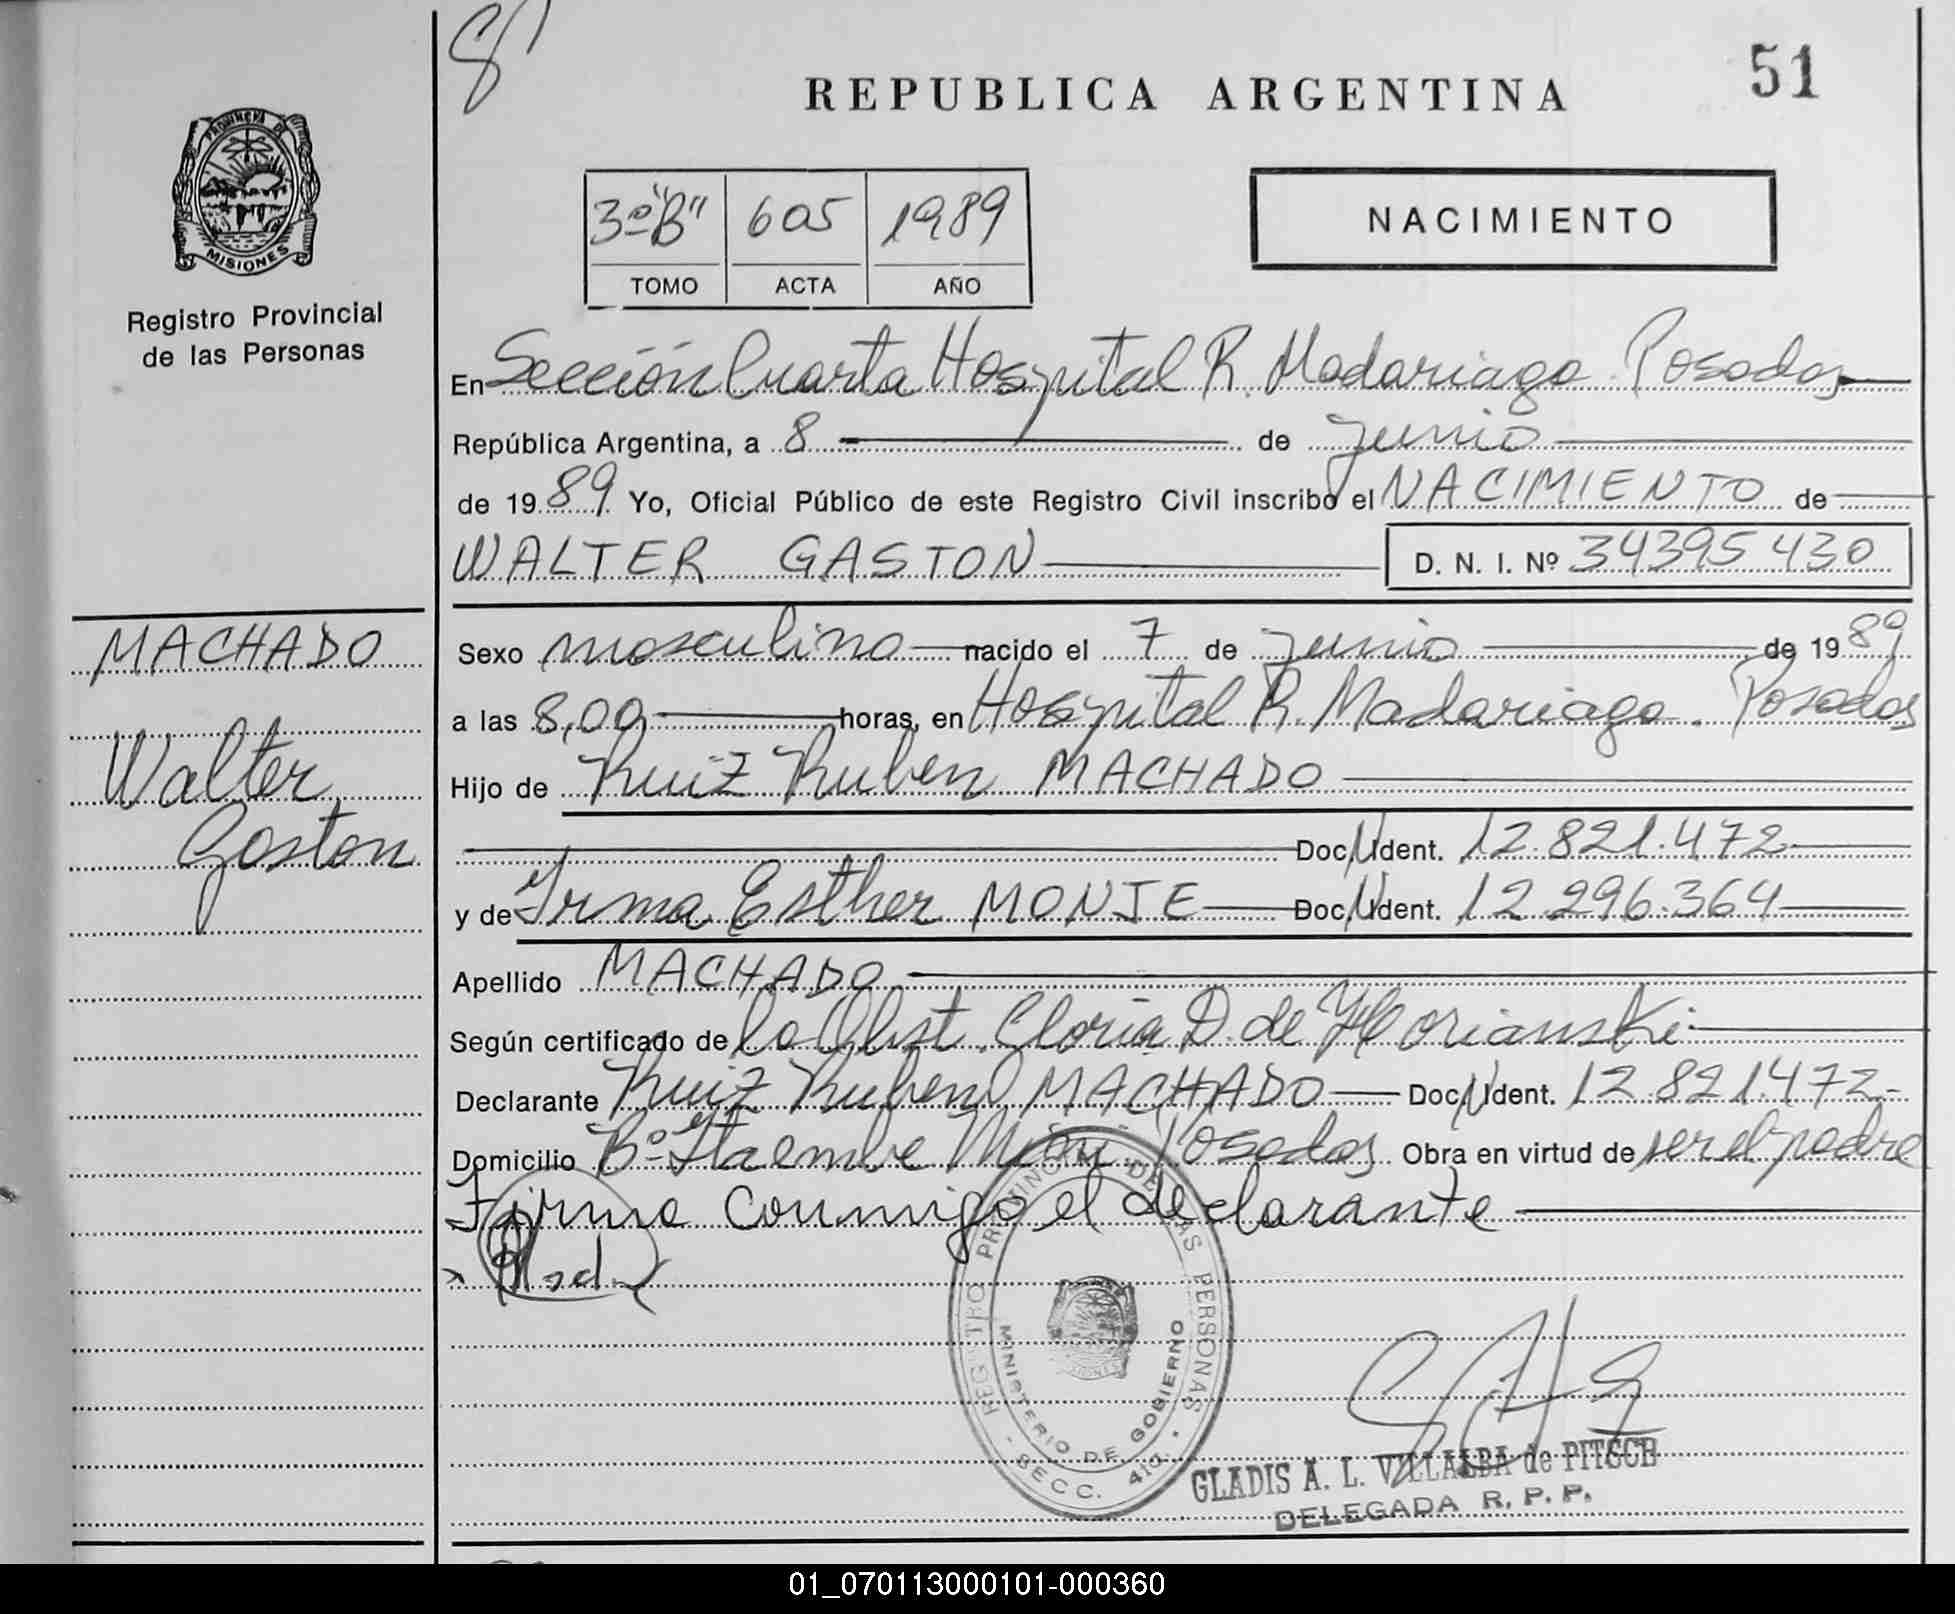 51
REPUBLICA ARGENTINA
3º "B" 605 1989
TOMO ACTA AÑO
NACIMIENTO
PROVINCIA DE
MISIONES
Registro Provincial
de las Personas
En Sección Cuarta Hospital R. Madariaga. Posadas
República Argentina, a 8 de junio
de 1989 Yo, Oficial Público de este Registro Civil inscribo el NACIMIENTO de
WALTER GASTON D. N. I. Nº 34395430
MACHADO
Walter
Gaston
Sexo masculino nacido el 7 de junio de 1989
a las 8,00 horas, en Hospital R. Madariaga. Posadas
Hijo de Ruiz Ruben MACHADO
Doc. Ident. 12.821.472
y de Irma Esther MONJE Doc. Ident. 12.296.364
Apellido MACHADO
Según certificado de la Obst. Gloria D. de
Declarante Ruiz Ruben MACHADO Doc. Ident. 12.821.472
Domicilio Bº Itaembe Miní Posadas Obra en virtud de ser el padre
Firma conmigo el declarante
REGISTRO PROVINCIAL DE LAS PERSONAS
MINISTERIO DE GOBIERNO
- SECC. 4ta. -
GLADIS A. L. VILLALBA de PITSCH
DELEGADA R. P. P.
01_070113000101-000360